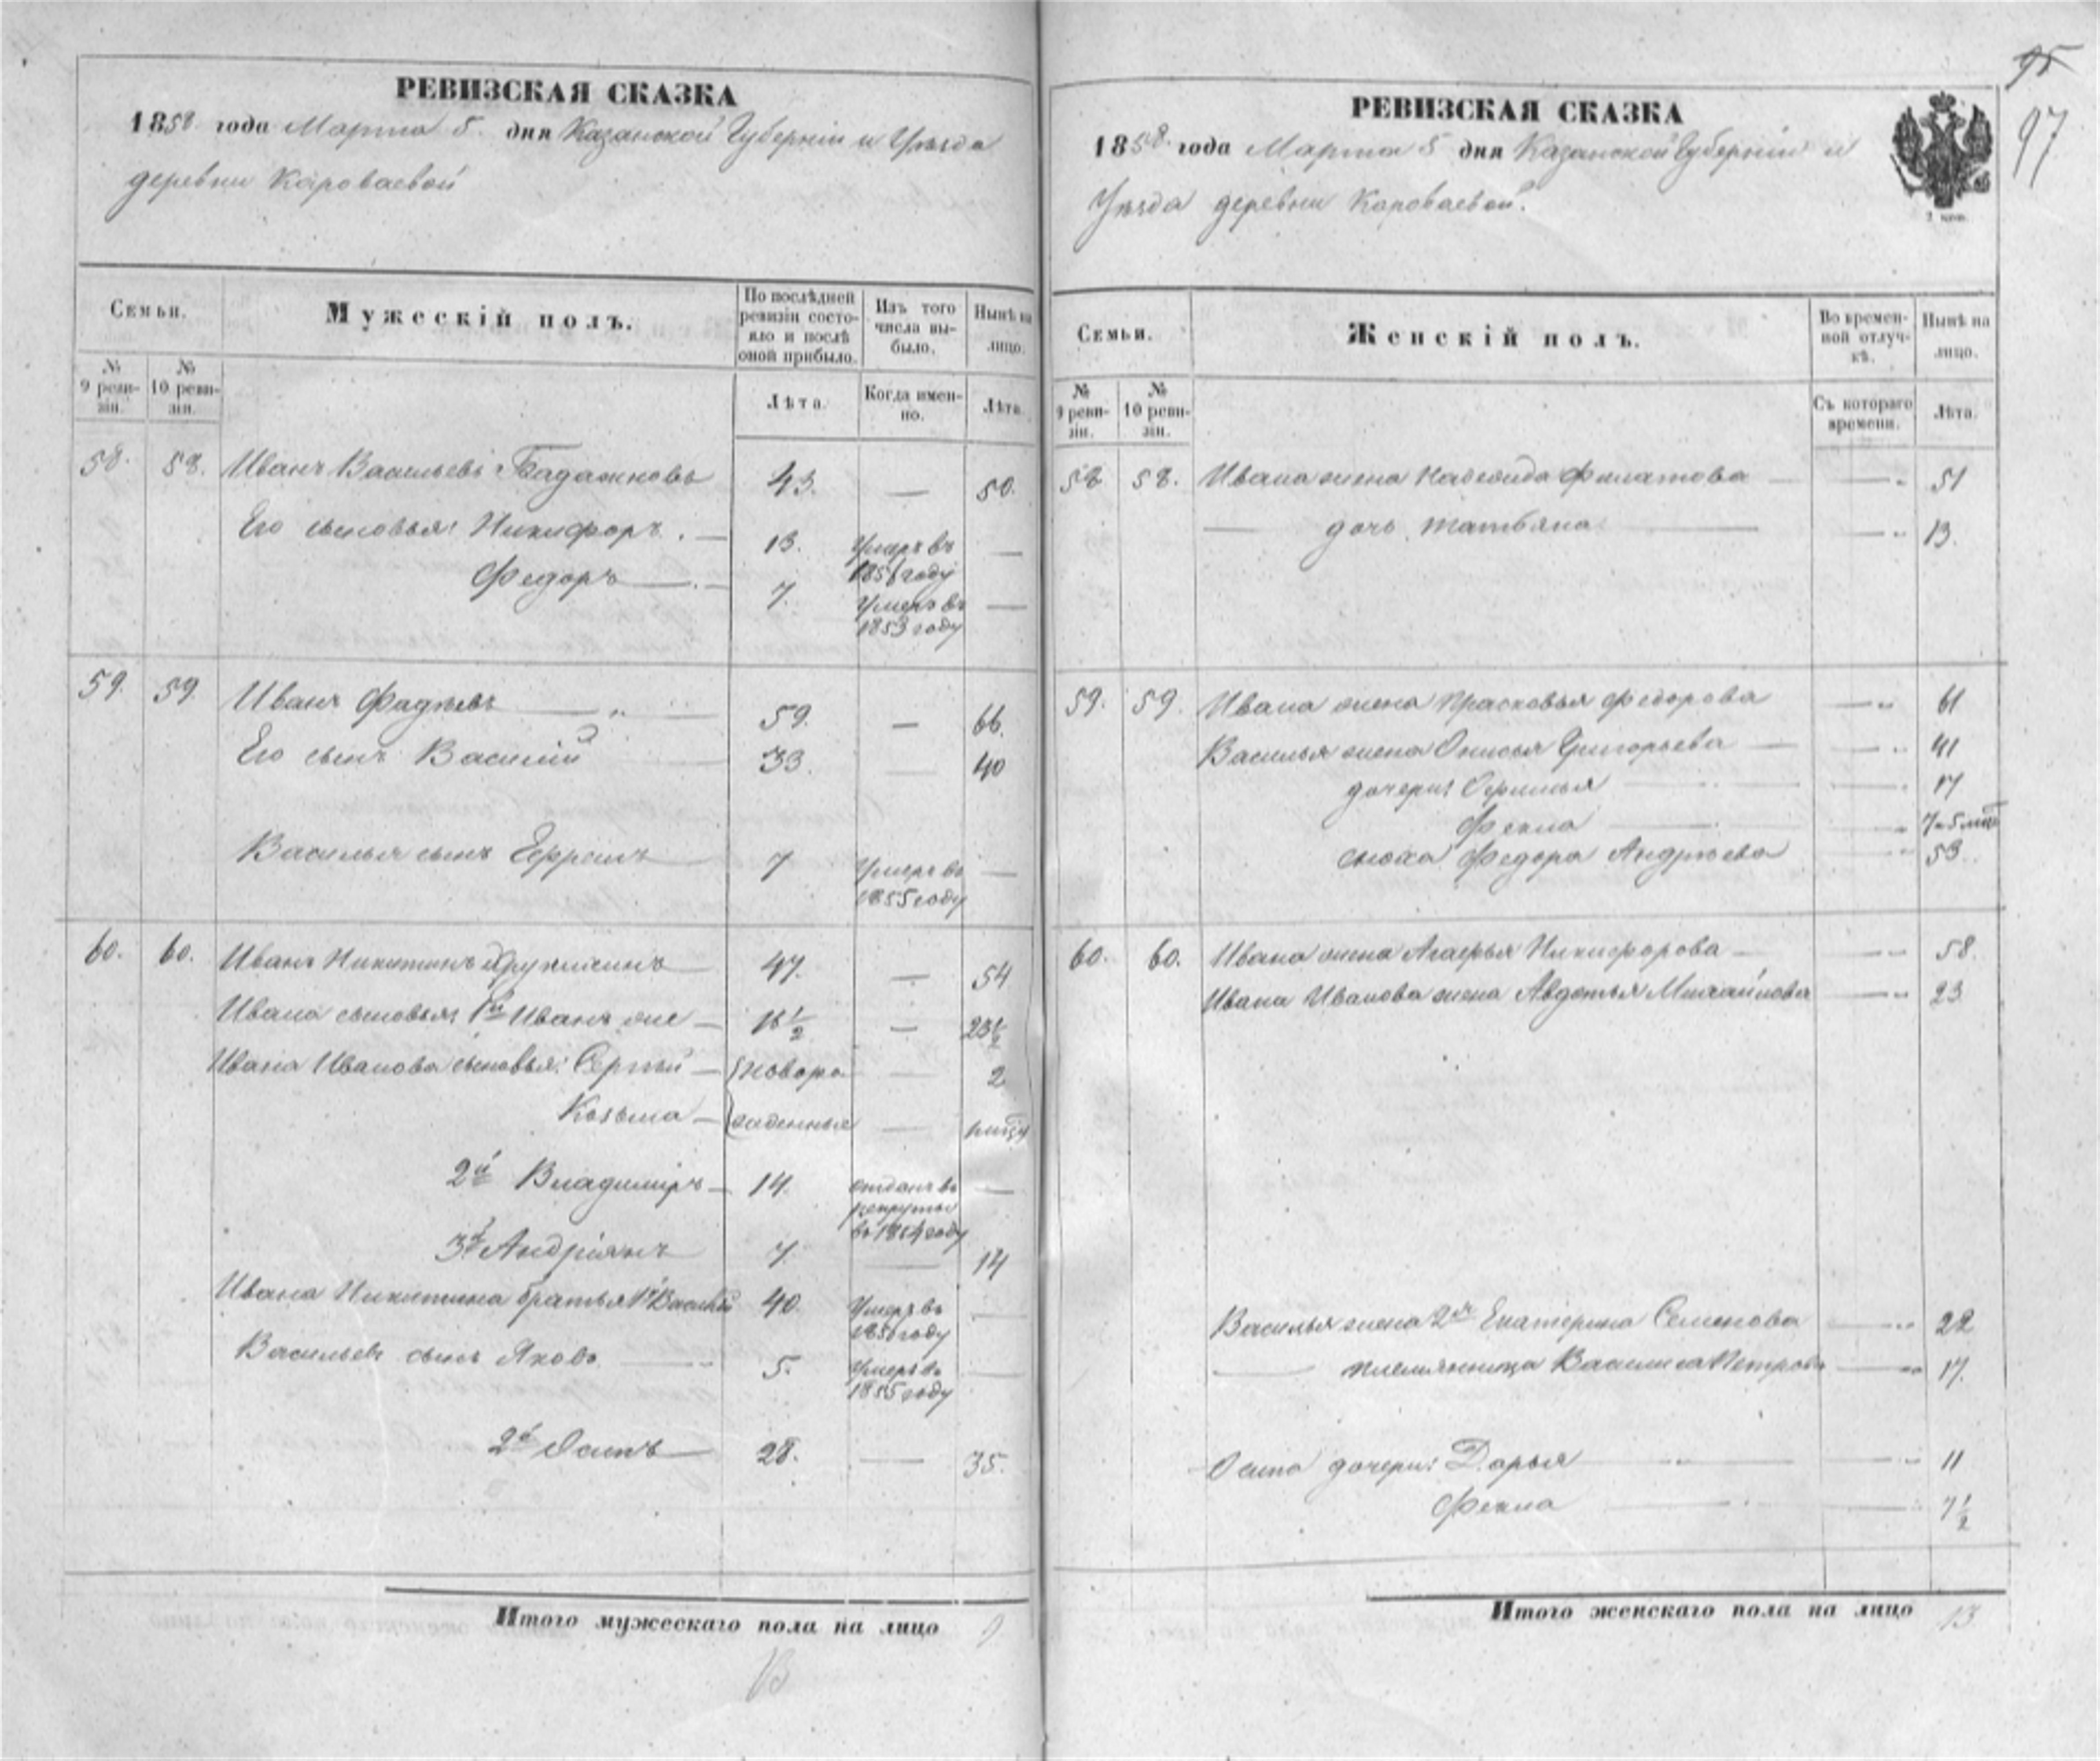 РЕВИЗСКАЯ СКАЗКА
1858 года Марта 5 дня Казанской Губерніи и Уѣзда
деревни Кароваевой
Семьи.
Мужескій полъ.
По послѣдней ревизіи состояло и послѣ оной прибыло.
Изъ того числа выбыло.
Нынѣ на лицо.
№ 9 ревизіи.
№ 10 ревизіи.
Лѣта
Когда именно.
Лѣта
58. 58. Иванъ Васильевъ 43. — 50.
Его сыновья: Никифоръ. — 13. Умеръ въ —
году
Федоръ — 7. Умеръ въ —
1853 году
59. 59. Иванъ Фадѣевъ — 59. — 66.
Его сынъ Василій 33. — 40
Василья сынъ Ефремъ 7 Умеръ въ —
1855 году
60. 60. Иванъ Никитинъ 47. — 54
Ивана сыновья: 1й Иванъ же — 16 1/2 — 23 1/2
Ивана Иванова сыновья: Сергѣй — {новоро — 2
Козьма — {жденныя —
2й Владимиръ — 14. отданъ въ —
рекруты
въ 1854 году
3й Андріянъ 7. — 14
Ивана Никитина братья 1й Василій 40. Умеръ въ —
году
Васильевъ сынъ Яковъ — 5. Умеръ въ —
1855 году
2й Осипъ — 28. — 35.
Итого мужескаго пола на лицо 9
95
97
РЕВИЗСКАЯ СКАЗКА
1858 года Марта 5 дня Казанской Губерніи и
Уѣзда деревни Короваевой.
Семьи.
Женскій полъ.
Во временной отлучкѣ.
Нынѣ на лицо.
№ 9 ревизіи.
№ 10 ревизіи.
Съ котораго времени.
Лѣта.
58 58. Ивана жена Надежда Филатова — 51
— дочь Татьяна — 13.
59. 59. Ивана жена Прасковья Федорова — 61
Василья жена Онисья Григорьева — 41
дочери: Офимья — 17
Фекла — 7 5
сноха Федора Андрѣева 53
60. 60. Ивана жена Агафья Никифорова — 58.
Ивана Иванова жена Авдотья Михайлова — 23
Василья жена 2я Екатерина Семенова — 22
— племянница Василиса Петрова — 17.
Осипа дочери: Дарья — 11
Фекла — 7 1/2
Итого женскаго пола на лицо 13